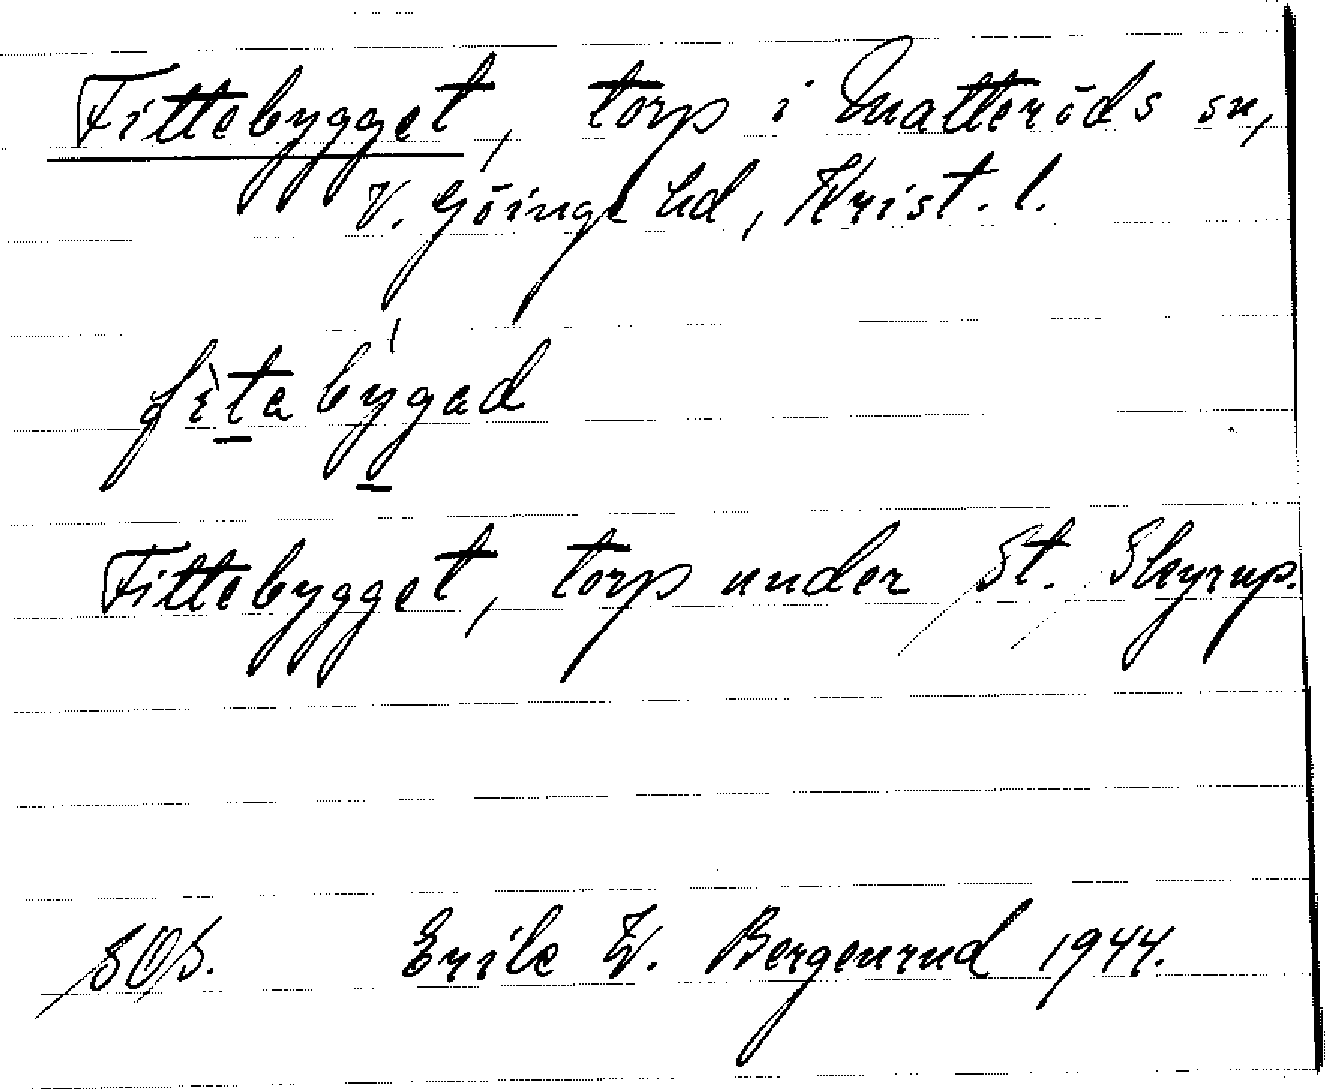 Fittebygget, torp i Matteröds sn,
V. Göinge hd, Krist. l.
fìtabýgad
Fittebygget, torp under St. Skyrup.
SOS. Erik W. Bergenrud 1944.